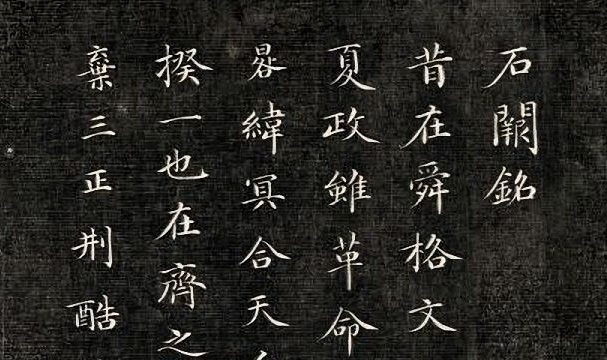 石闕銘
昔在舜格文
夏政雖革命
晷緯冥合天
揆一也在齊之
棄三正刑酷